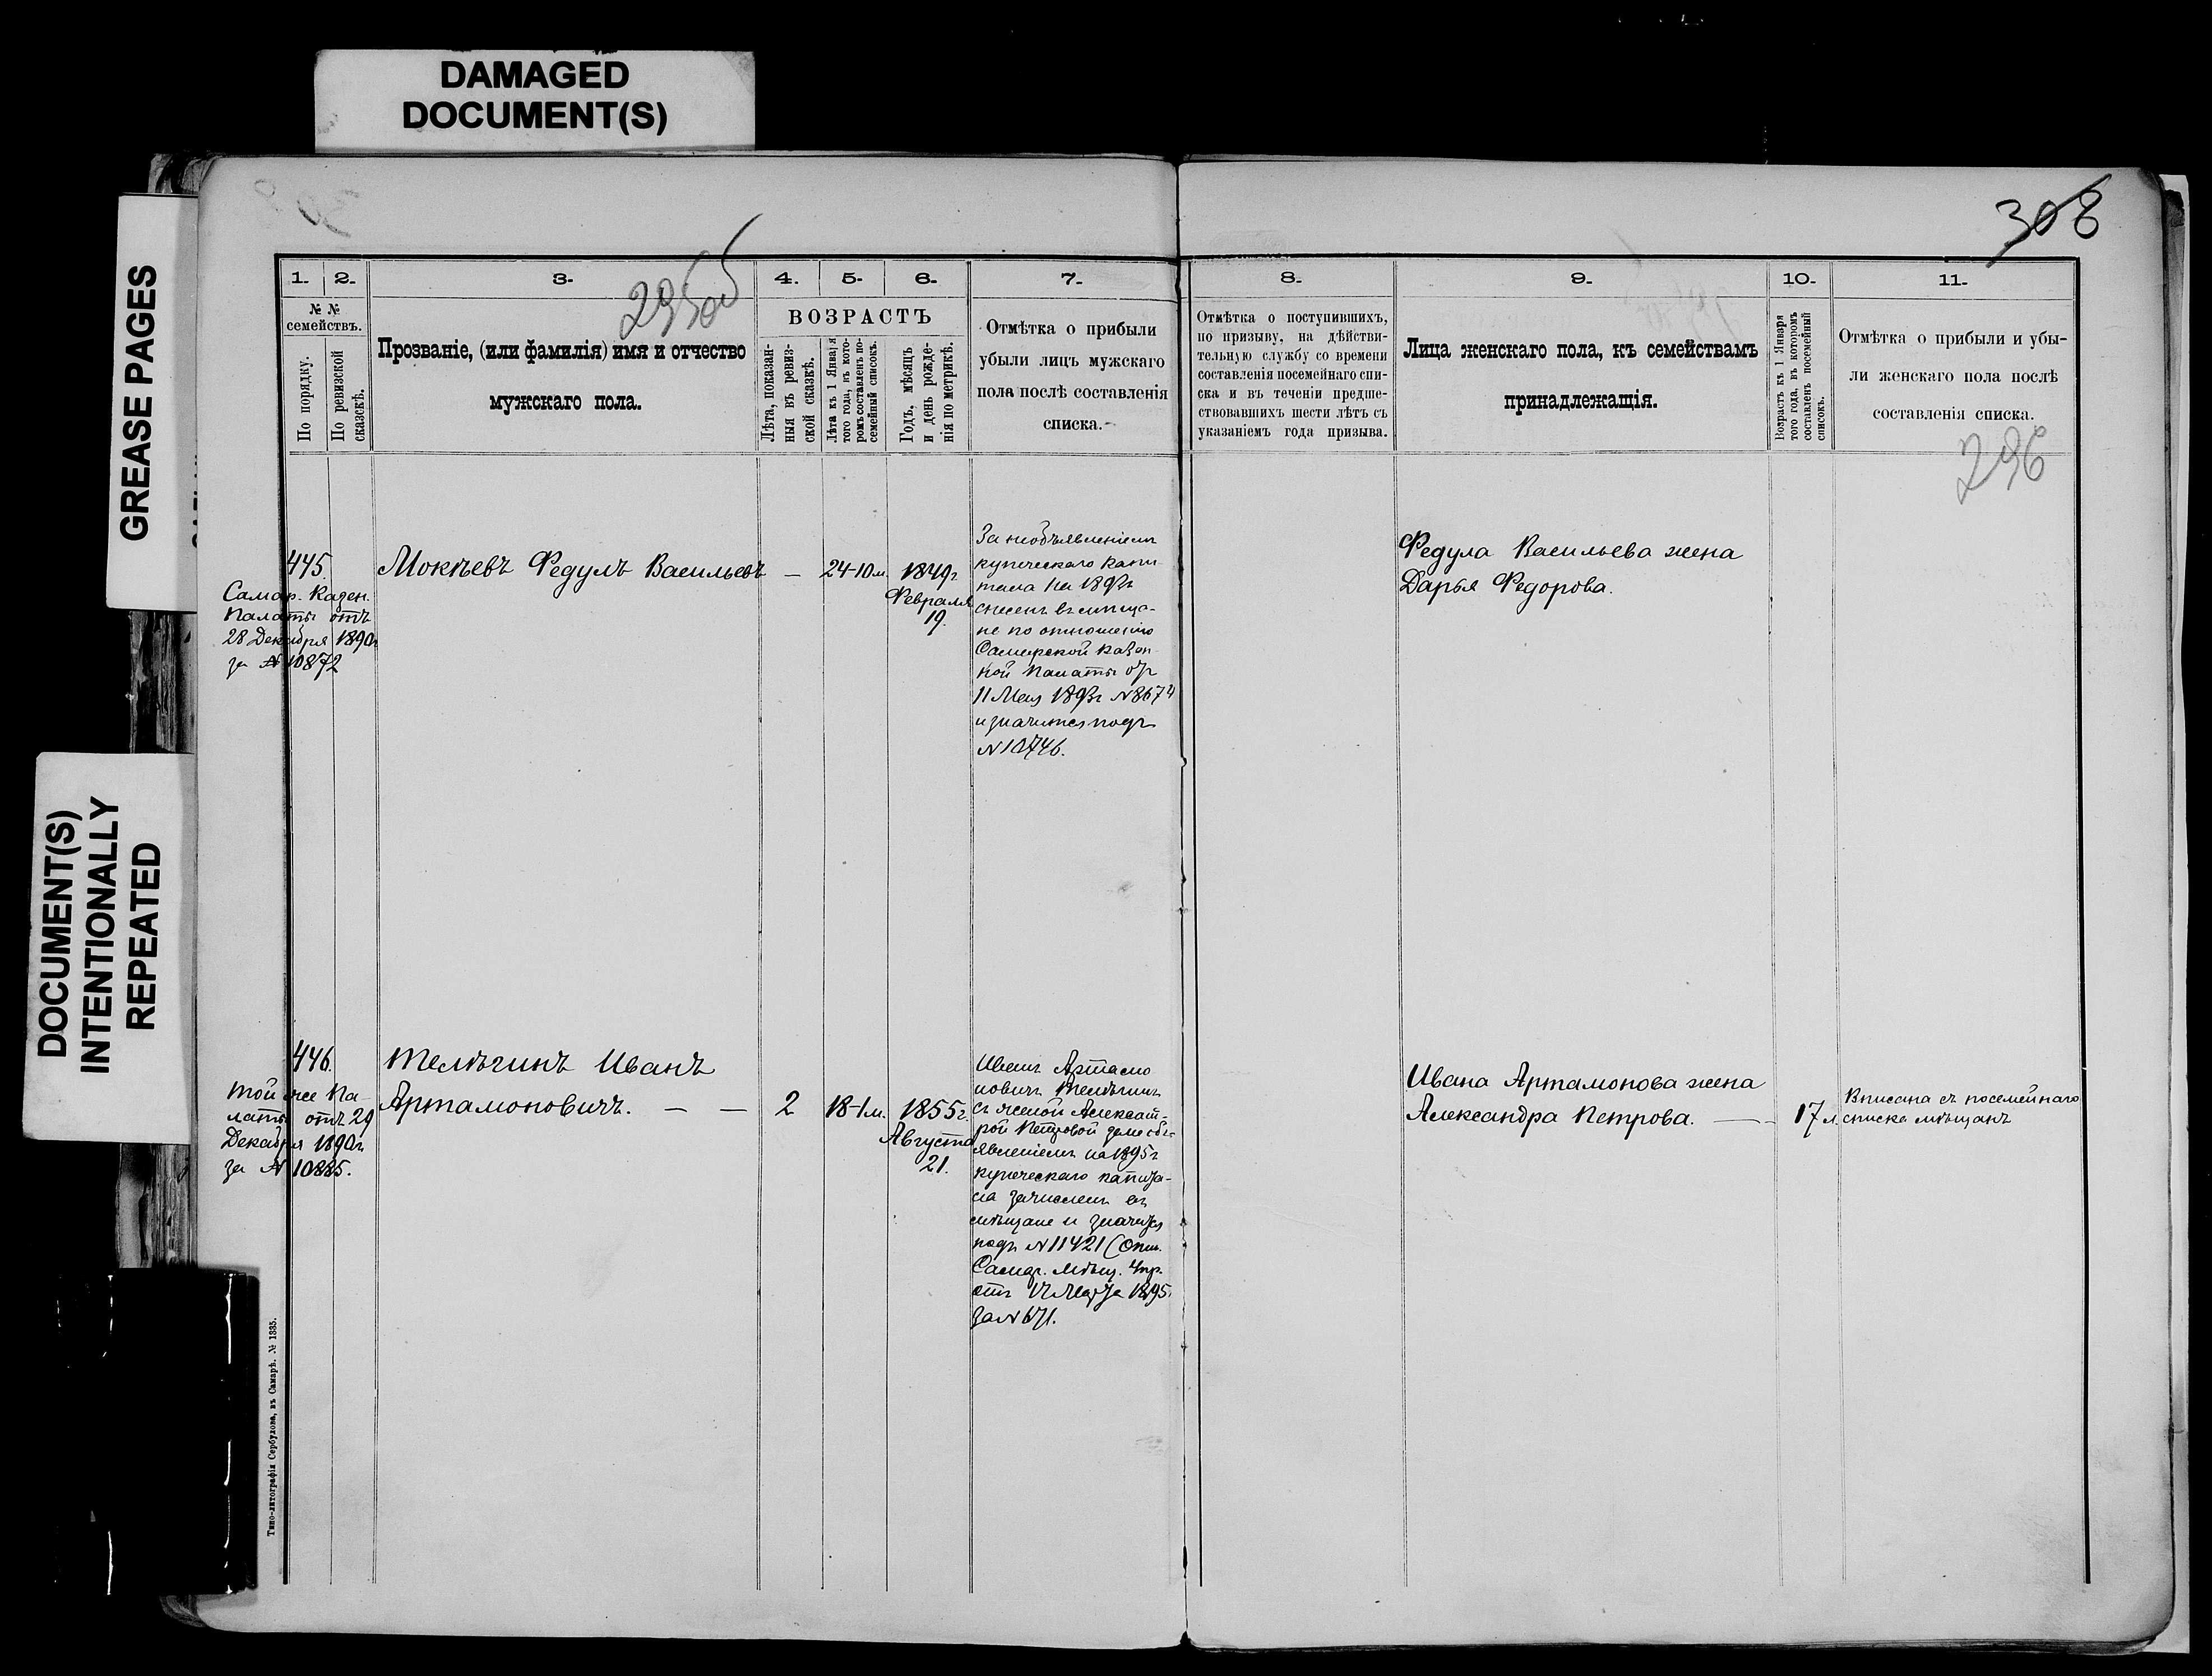 DAMAGED
DOCUMENT(S)
GREASE PAGES
DOCUMENT(S)
INTENTIONALLY
REPEATED
308
295об
1.
2.
3.
4.
5.
6.
7.
8.
9.
10.
11.
№ №
семействъ.
По порядку.
По ревизской
сказскѣ.
Прозваніе, (или фамилія) имя и отчество
мужскаго пола.
ВОЗРАСТЪ
Лѣта, показан-
ныя въ ревиз-
ской сказкѣ.
Лѣта къ 1 Января
того года, въ кото-
ромъ составленъ по-
семейный списокъ.
Годъ, мѣсяцъ
и день рожде-
нія по метрикѣ.
Отмѣтка о прибыли
убыли лицъ мужскаго
пола послѣ составленія
списка.
Отмѣтка о поступившихъ,
по призыву, на дѣйстви-
тельную службу со времени
составленія посемейнаго спи-
ска и въ теченіи предше-
ствовавшихъ шести лѣтъ съ
указаніемъ года призыва.
Лица женскаго пола, къ семействамъ
принадлежащія.
Возрастъ къ 1 Января
того года, въ которомъ
составленъ посемейный
списокъ.
Отмѣтка о прибыли и убы-
ли женскаго пола послѣ
составленія списка.
296
445.
Самар. Казен.
Палаты отъ
28 Декабря 1890г.
за № 10872
Мокѣевъ Федулъ Васильевъ
—
24-10м.
1849г.
Февраля
19.
За необъявленіемъ
купеческаго капи-
тала на 1892г
снесенъ въ мѣща-
не по отношенію
Самарской Казен
ной Палаты от
11 Мая 1893г №8674
и значится подъ
№10746.
Федула Васильева жена
Дарья Федорова.
446.
Той же Па-
латы отъ 29
Декабря 1890г.
за № 10885.
Телѣгинъ Иванъ
Артамоновичъ. — —
2
18-1м.
1855г.
Августа
21.
Иванъ Артамо
новичъ Телѣгинъ
съ женой Александ-
рой Петровой
явленіемъ на 1895г
купеческаго капита-
ла зачисленъ въ
мѣщане и значится
подъ №11421 (Отн.
Самар. Мѣщ. Упр.
отъ Марта 1895г.
за №671.
Ивана Артамонова жена
Александра Петрова. —
17 л.
Вписана съ посемейнаго
списка мѣщанъ
Типо-литографія Сербулова, въ Самарѣ. № 1335.